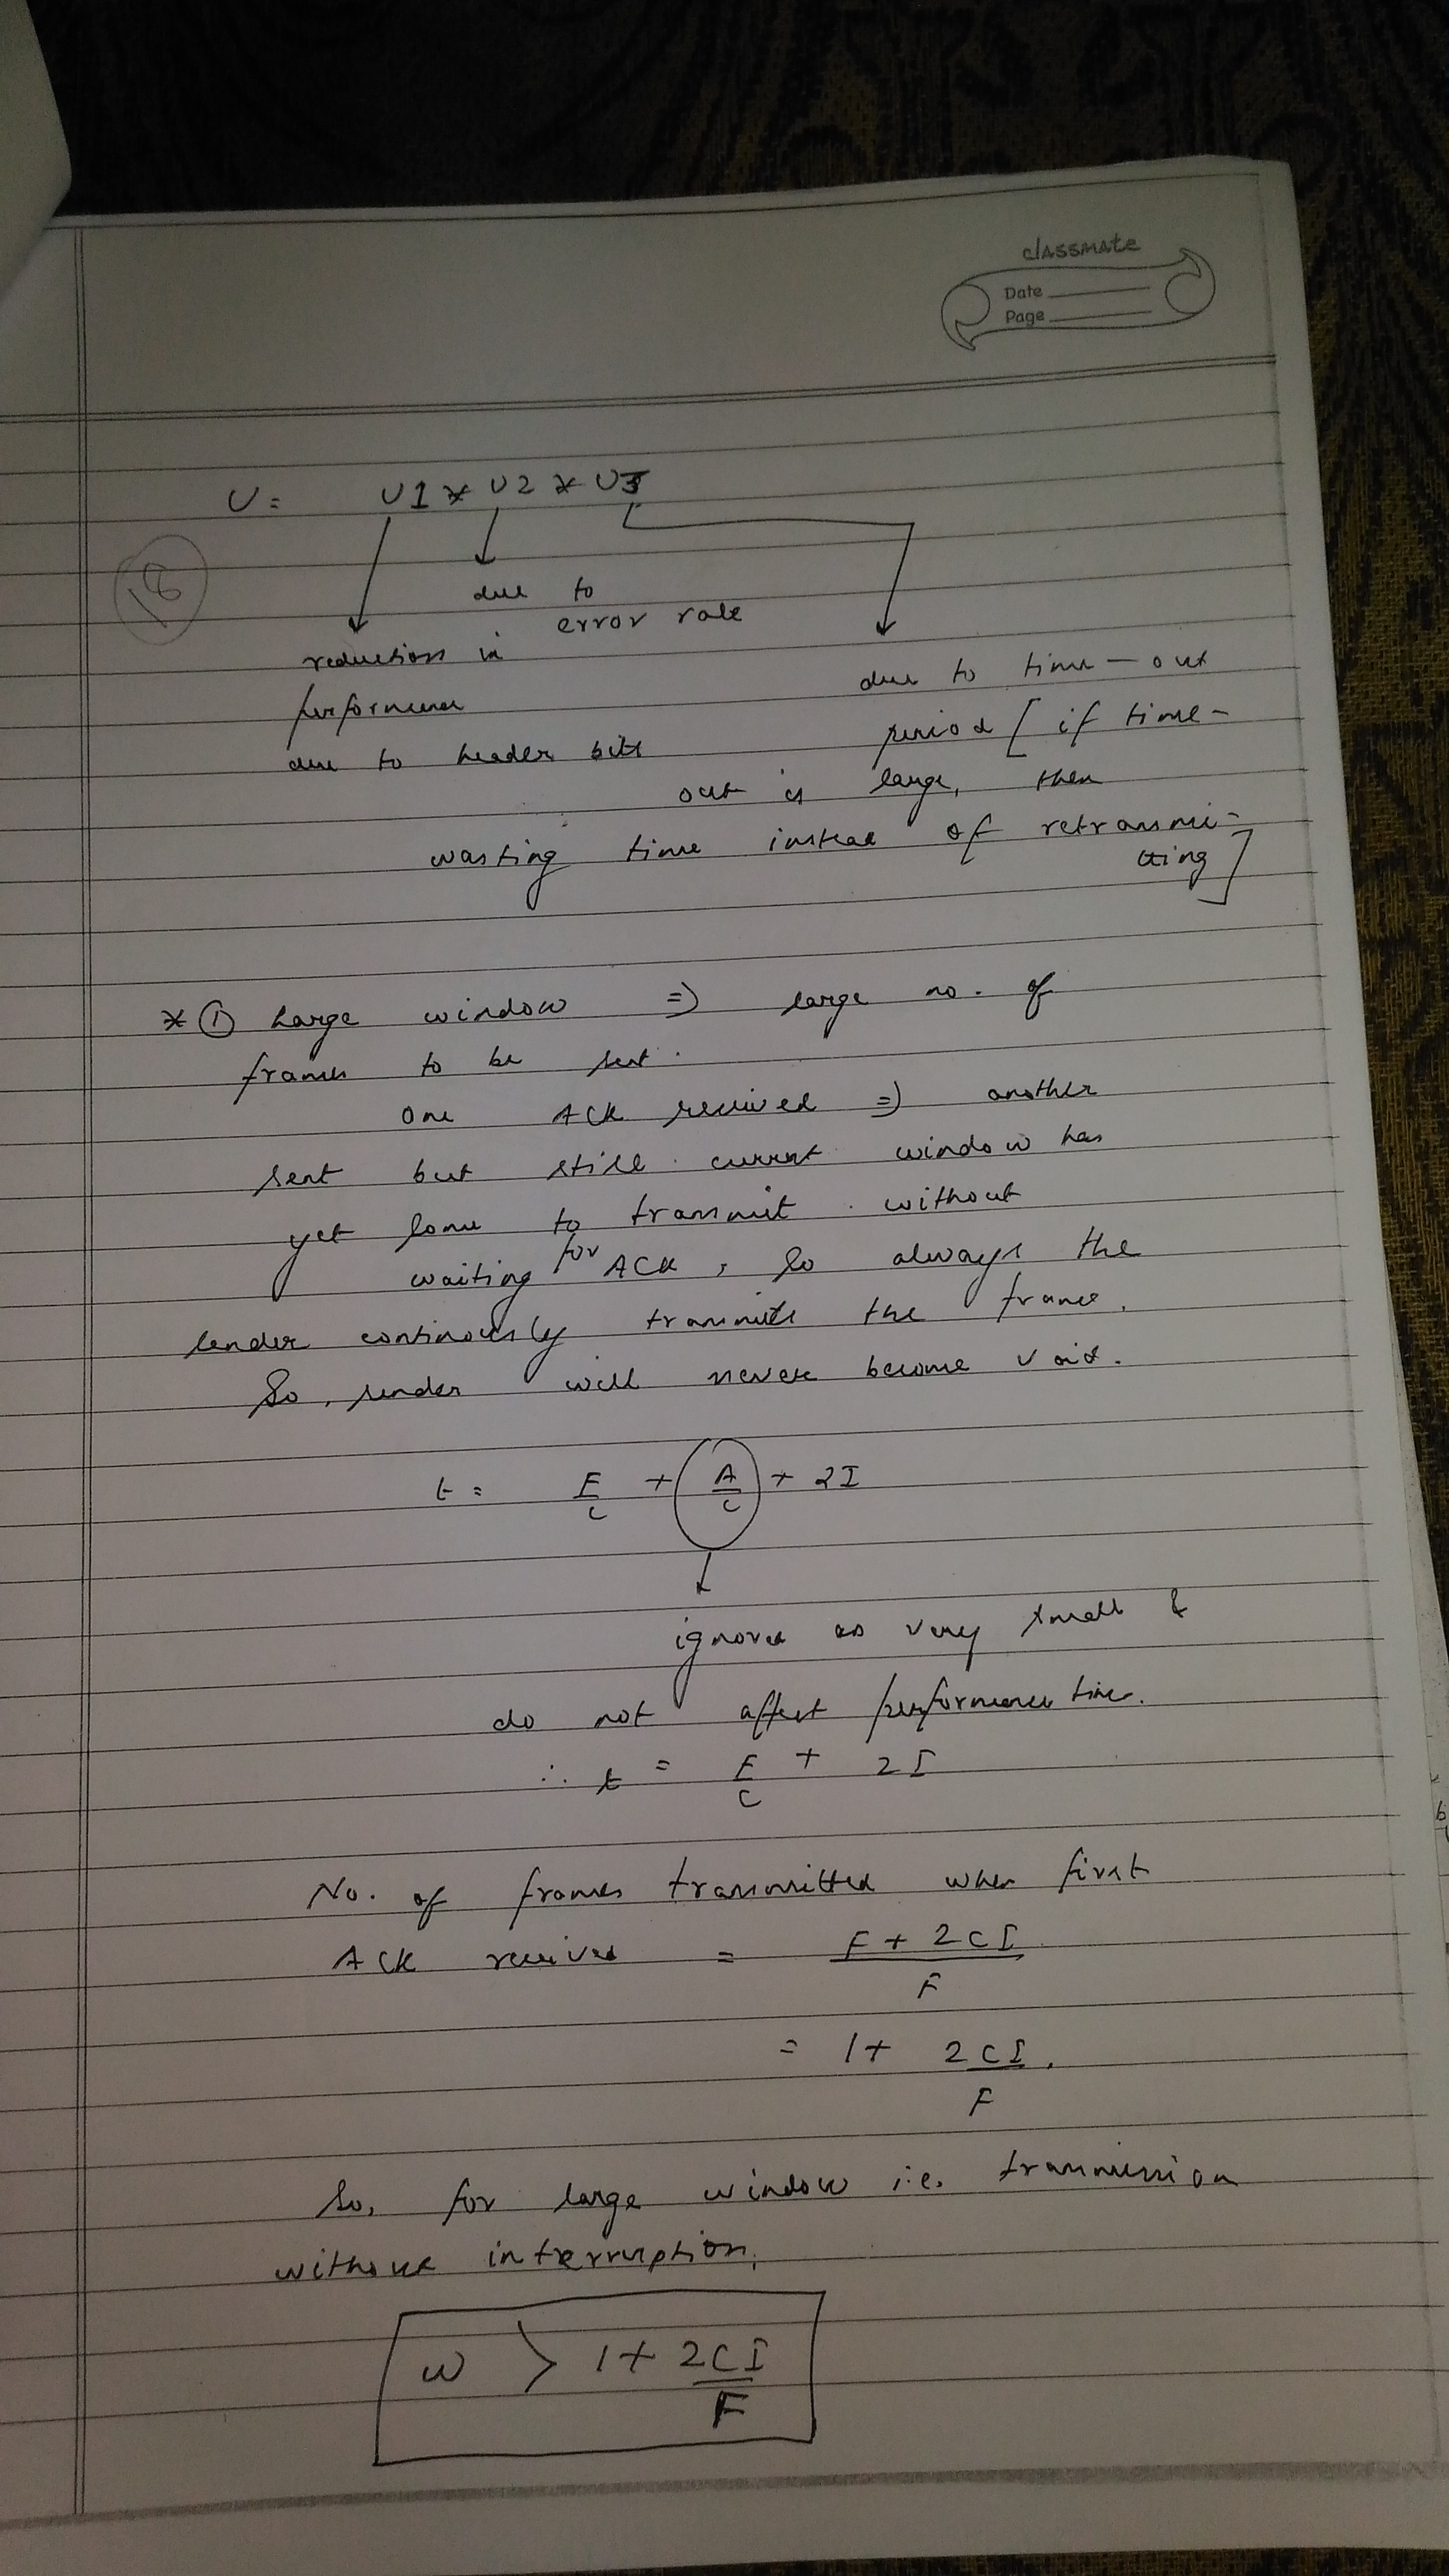 classmate
Date
Page
U = U1 * U2 * U3
18
due to
error rate
reduction in
performance
due to header bits
due to time-out
period [if time-
out is large, then
wasting time instead of retransmi-
tting]
* ① Large window ⇒ large no. of
frames to be sent.
One ACK received ⇒ another
sent but still current window has
yet some to transmit without
waiting for ACK, so always the
sender continously transmits the frame.
So, sender will never become void.
t = F/C + A/C + 2I
ignored as very small &
do not affect performance time.
∴ t = F/C + 2I
No. of frames transmitted when first
ACK received = (F + 2CI)/F
= 1 + 2CI/F.
So, for large window i.e. transmission
without interruption,
w > 1 + 2CI/F